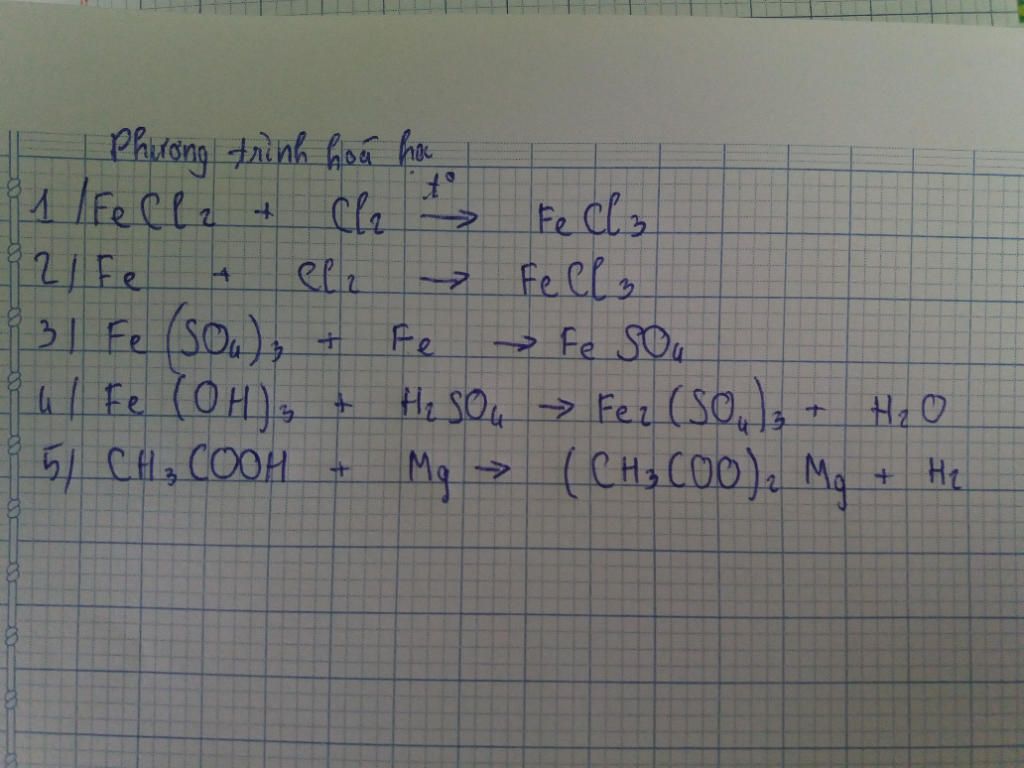 Phương trình hoá học
1/ FeCl2 + Cl2 t° → FeCl3
2/ Fe + Cl2 → FeCl3
3/ Fe(SO4)3 + Fe → FeSO4
4/ Fe(OH)3 + H2SO4 → Fe2(SO4)3 + H2O
5/ CH3COOH + Mg → (CH3COO)2 Mg + H2